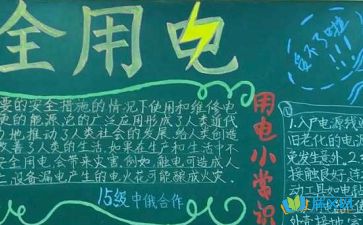 全用电
要的安全措施的情况下使用和维修电
更的能源,它的广泛应形成了人类近代
力地推动了人类社会的发展,给人类创造
改善了人类的生活。如果在生产和生活中不
安全用电,会带来灾害,例如,触电可造成人
设备漏电产生的电火花可能酿成火灾.
15级中俄合作
用电小常识
1.入户电源线
旧老化的电源
免发生意外.2.
接触良好,连
动工具如电
外壳接地